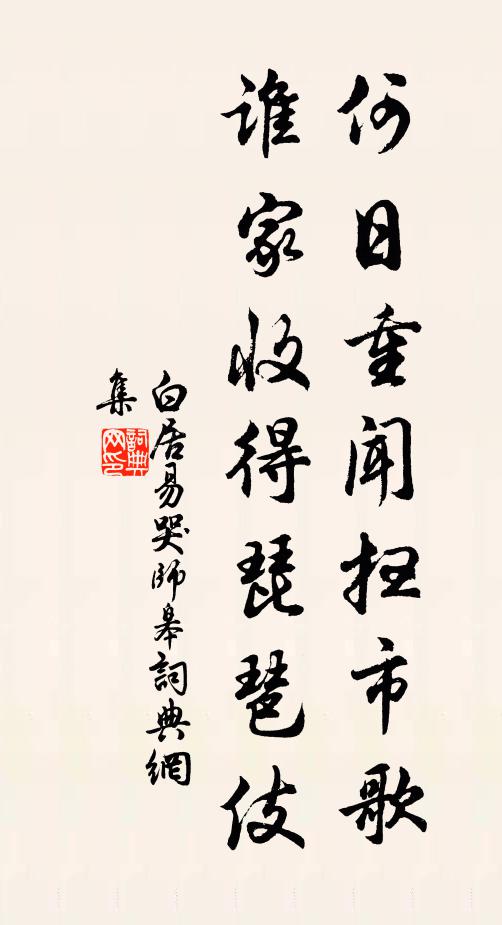 何日重聞扫市歌
谁家收得琵琶伎
白居易哭師皋詞典網
集
詞典网印